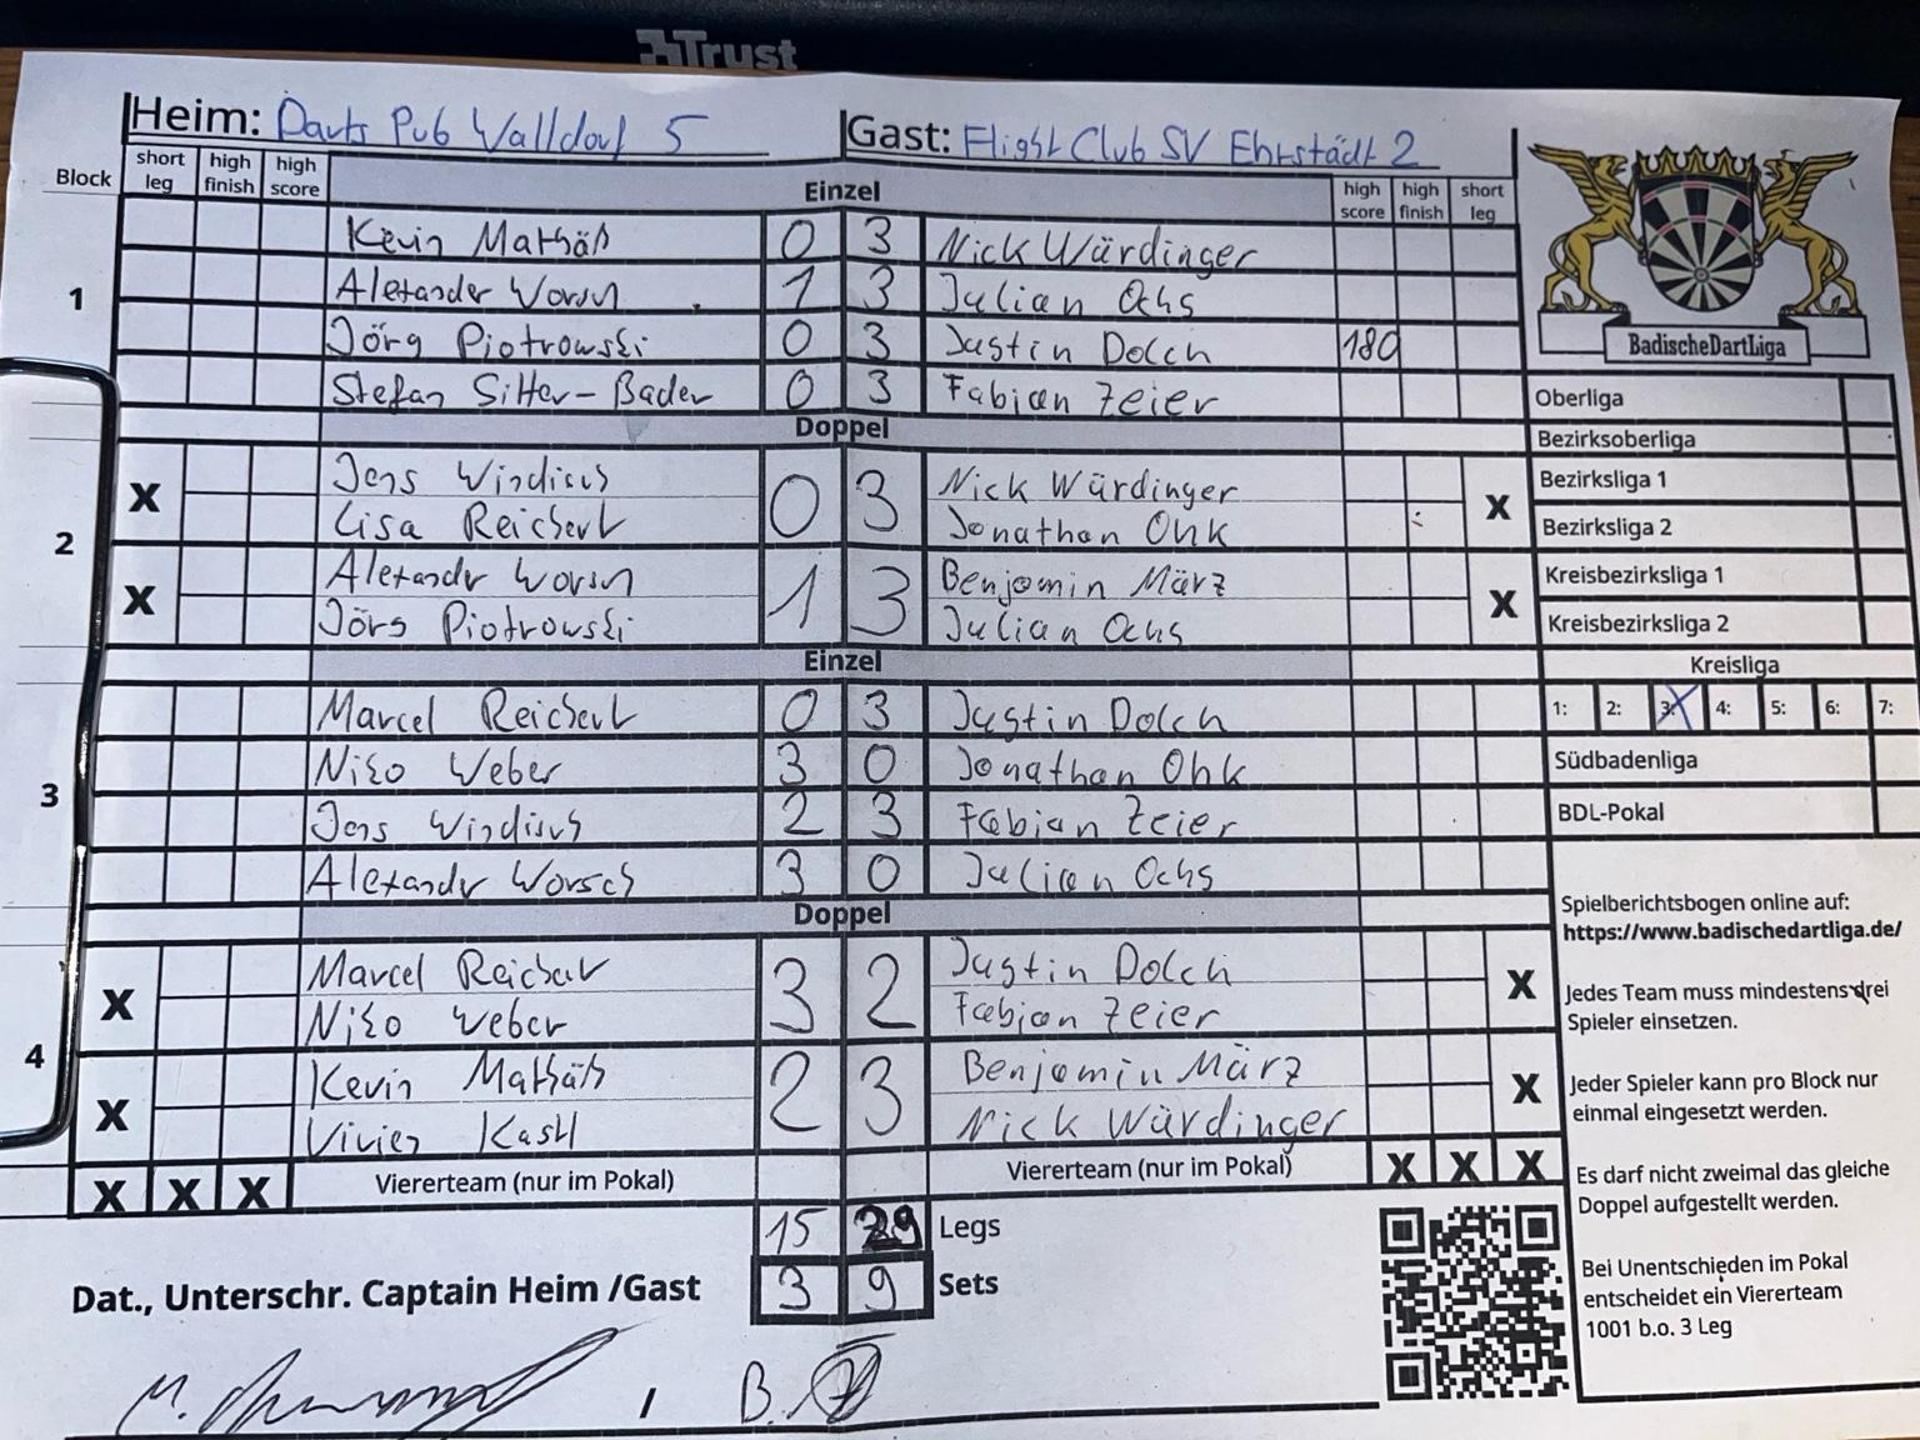 Trust
Heim: Darts Pub Walldorf 5 Gast: Flight Club SV Ehrstädt 2
Block short leg high finish high score Einzel high score high finish short leg
1
Kevin Mathäß 0 3 Nick Würdinger
Alexander Worsch 1 3 Julian Ochs
Jörg Piotrowski 0 3 Justin Dolch 180
Stefan Sitter-Bader 0 3 Fabian Zeier
Doppel
2
X Jens Windisch 0 3 Nick Würdinger X
Lisa Reichert Jonathan Ohk
X Alexander Worsch 1 3 Benjamin März X
Jörg Piotrowski Julian Ochs
Einzel
3
Marcel Reichert 0 3 Justin Dolch
Niko Weber 3 0 Jonathan Ohk
Jens Windisch 2 3 Fabian Zeier
Alexander Worsch 3 0 Julian Ochs
Doppel
4
X Marcel Reichert 3 2 Justin Dolch X
Niko Weber Fabian Zeier
X Kevin Mathäß 2 3 Benjamin März X
Vivien Kastl Nick Würdinger
X X X Viererteam (nur im Pokal) Viererteam (nur im Pokal) X X X
15 29 Legs
3 9 Sets
Dat., Unterschr. Captain Heim /Gast
/
BadischeDartLiga
Oberliga
Bezirksoberliga
Bezirksliga 1
Bezirksliga 2
Kreisbezirksliga 1
Kreisbezirksliga 2
Kreisliga
1: 2: 3: X 4: 5: 6: 7:
Südbadenliga
BDL-Pokal
Spielberichtsbogen online auf:
https://www.badischedartliga.de/
Jedes Team muss mindestens drei
Spieler einsetzen.
Jeder Spieler kann pro Block nur
einmal eingesetzt werden.
Es darf nicht zweimal das gleiche
Doppel aufgestellt werden.
Bei Unentschieden im Pokal
entscheidet ein Viererteam
1001 b.o. 3 Leg